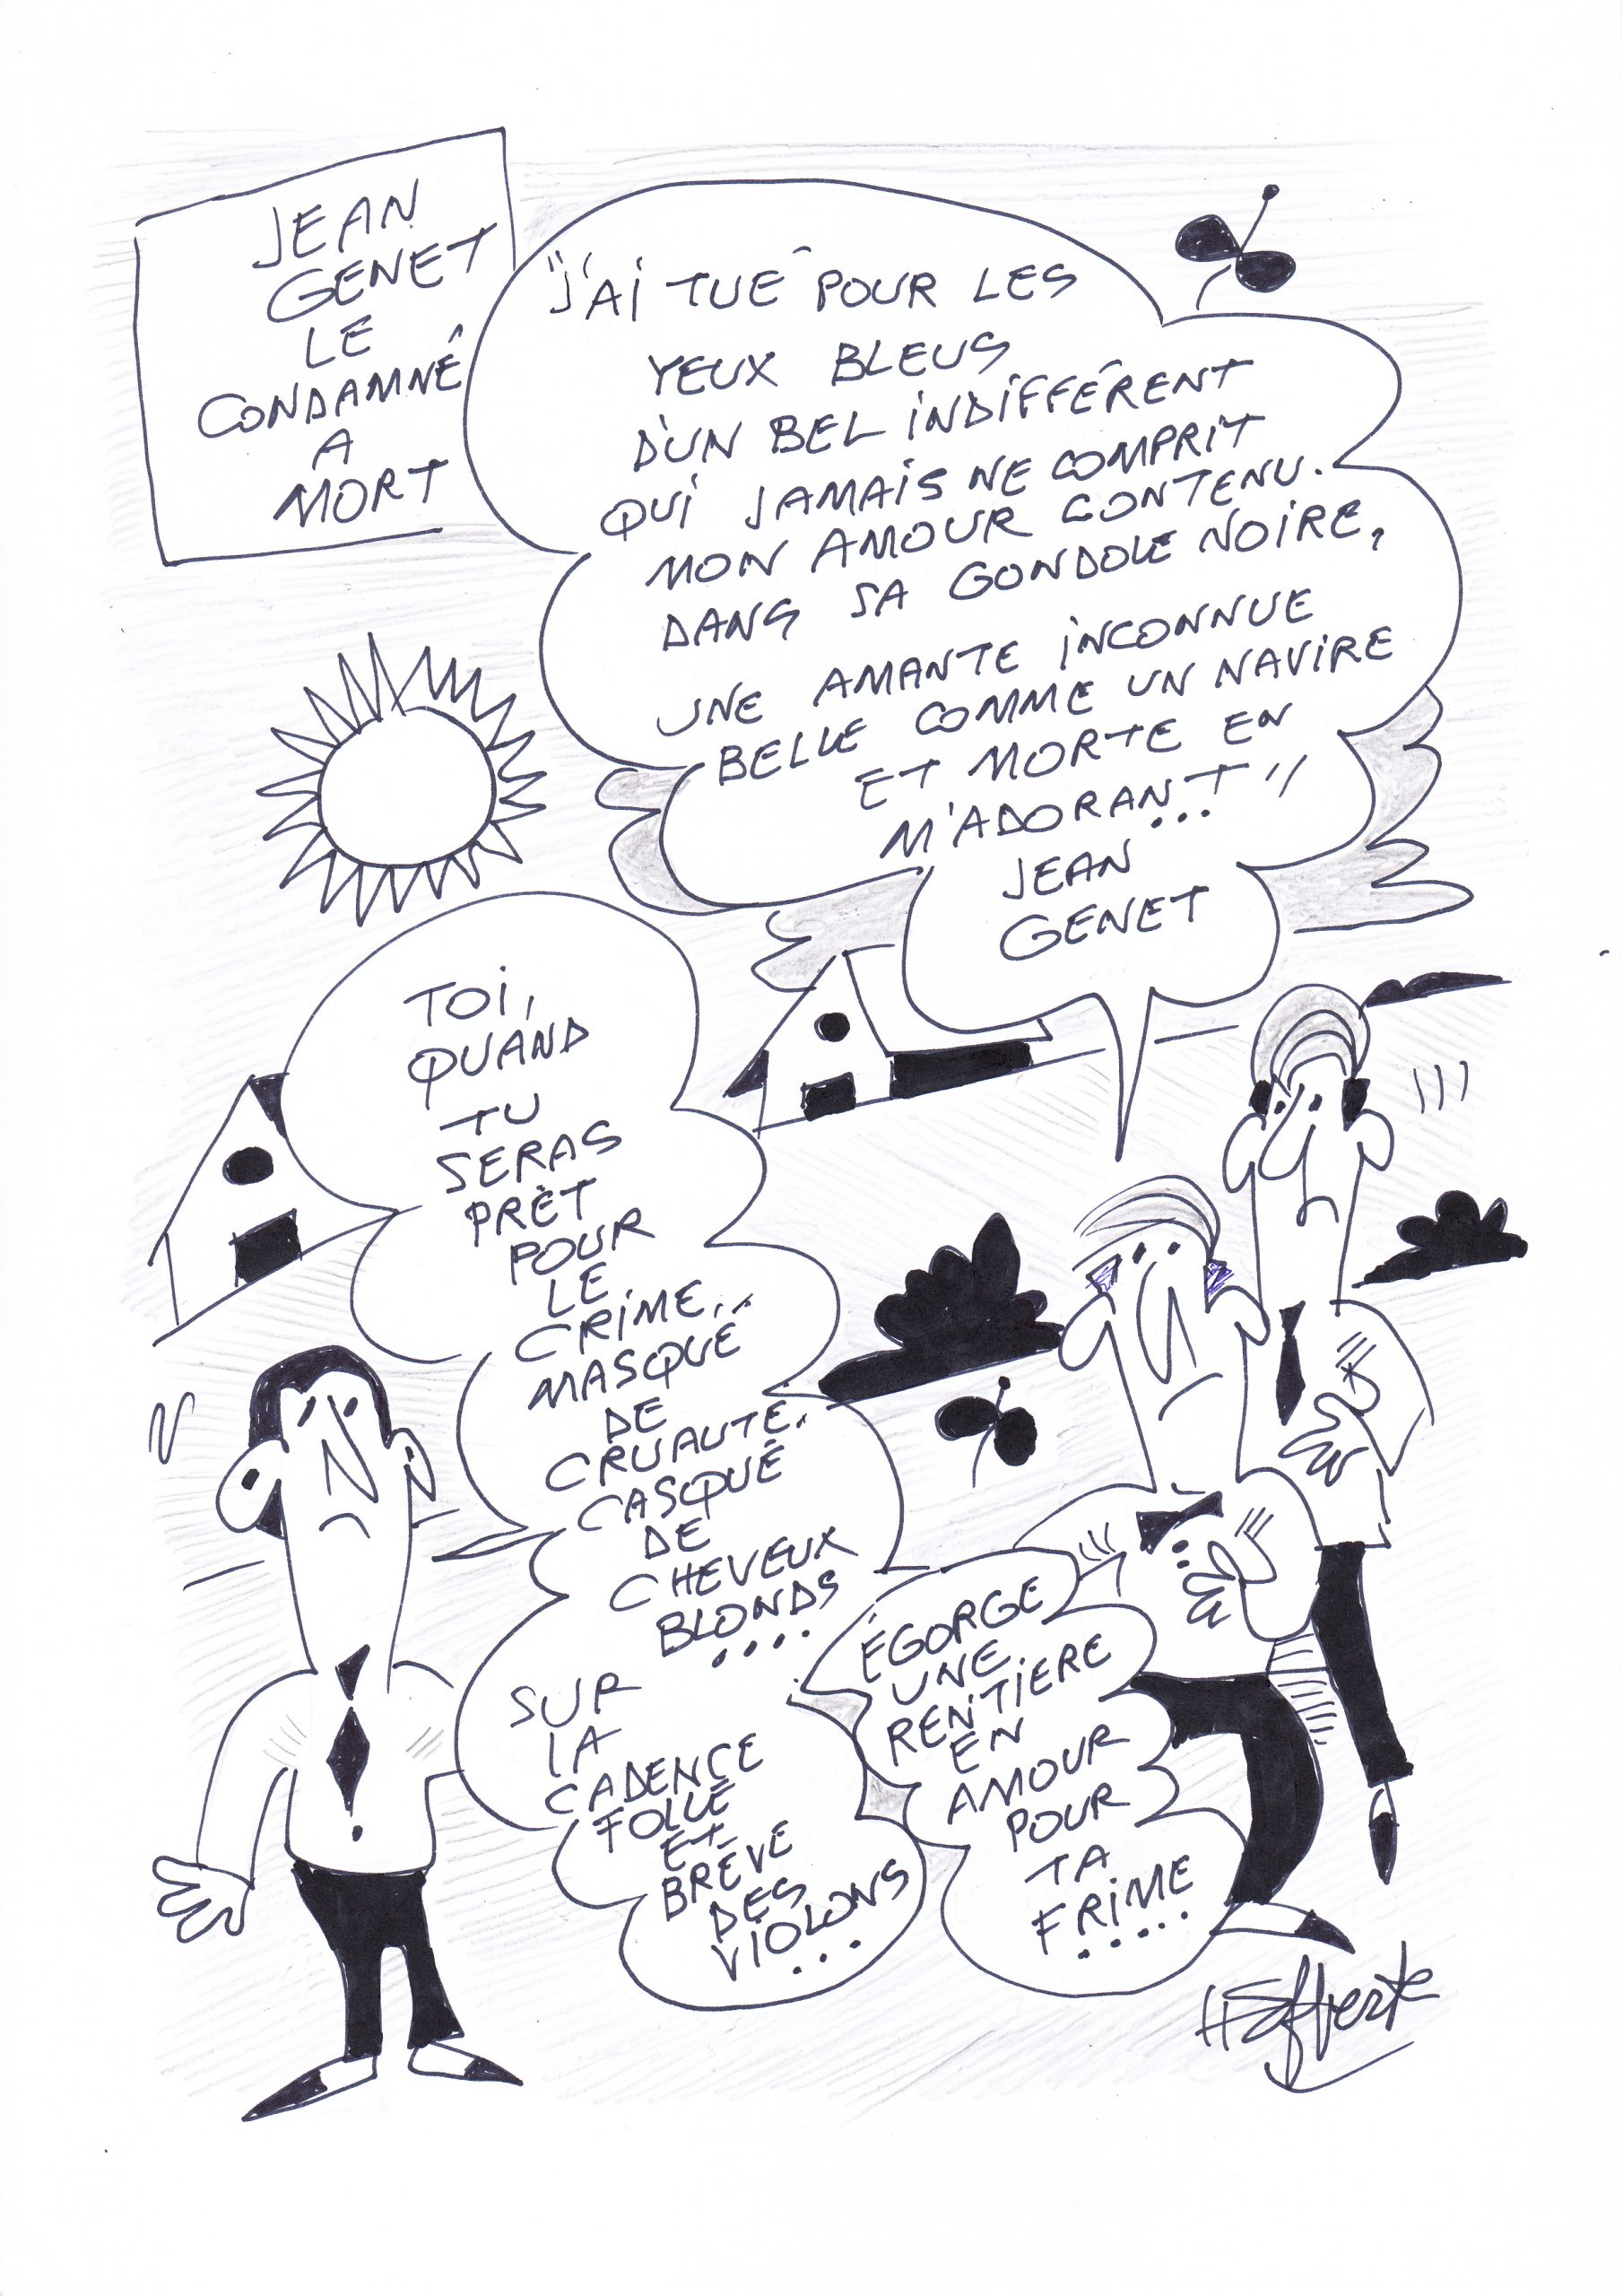 JEAN
GENET
LE
CONDAMNÉ
A
MORT
"J'AI TUÉ POUR LES
YEUX BLEUS
D'UN BEL INDIFFÉRENT
QUI JAMAIS NE COMPRIT
MON AMOUR CONTENU.
DANS SA GONDOLE NOIRE,
UNE AMANTE INCONNUE
BELLE COMME UN NAVIRE
ET MORTE EN
M'ADORANT"
...
JEAN
GENET
TOI,
QUAND
TU
SERAS
PRÈT
POUR
LE
CRIME...
MASQUÉ
DE
CRUAUTÉ.
CASQUÉ
DE
CHEVEUX
BLONDS
....
SUR
LA
CADENCE
FOLLE
ET
BRÈVE
DES
VIOLONS
...
ÉGORGE
UNE
RENTIERE
EN
AMOUR
POUR
TA
FRIME
.....